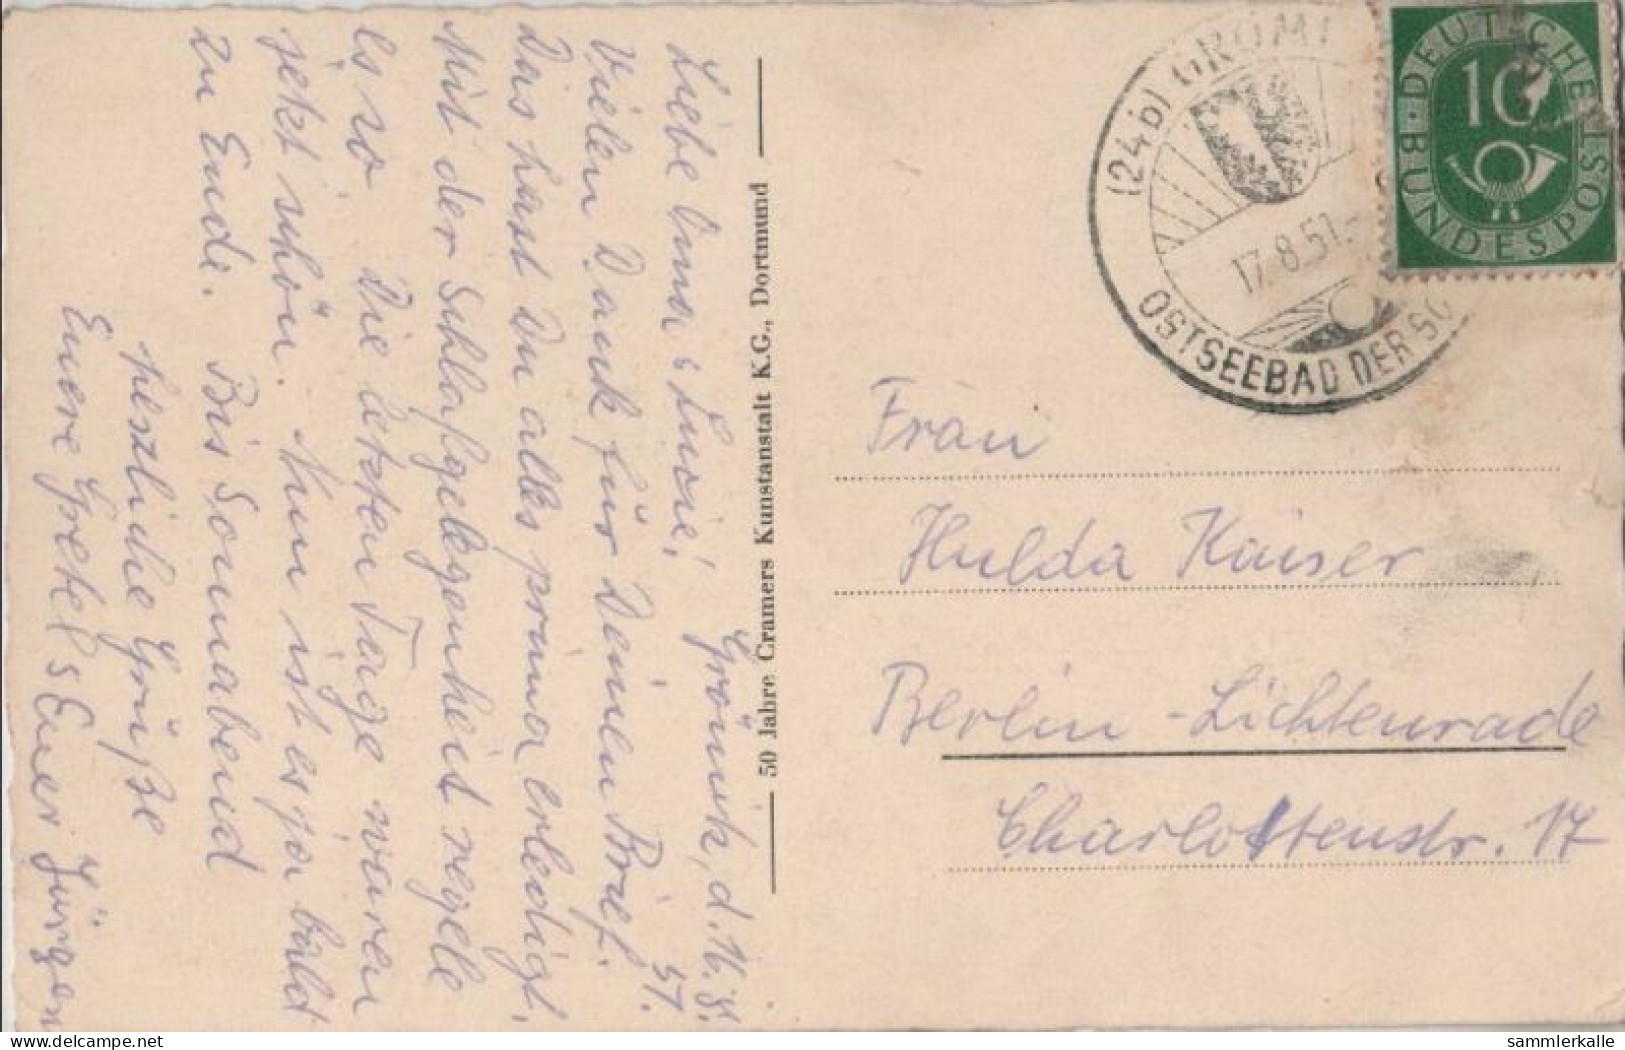 Grömitz, d. 16.8.
51.
Liebe Oma u. Lucie!
Vielen Dank für Deinen Brief.
Das hast Du alles prima erledigt.
Mit der Schlafgelegenheit regele
es so. Die letzten Tage waren
jetzt schön. Nun ist es ja bald
zu Ende. Bis Sonnabend
herzliche Grüße
Euere Gretel u. Euer Jürgen
50 Jahre Cramers Kunstanstalt K.G., Dortmund
(24b) GRÖMI
17.8.51.-
OSTSEEBAD DER SO
DEUTSCHE BUNDESPOST
10
Frau
Hulda Kaiser
Berlin-Lichtenrade
Charlottenstr. 17
sammlerkalle